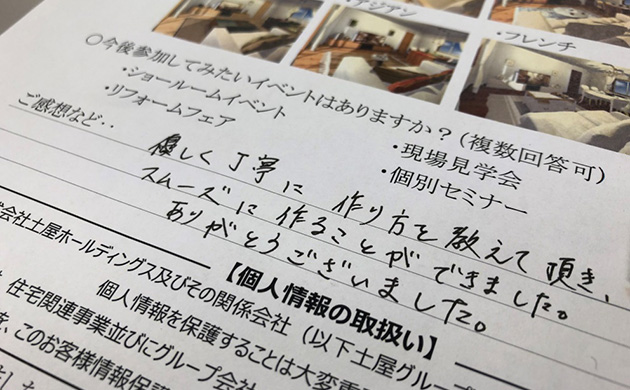 ・フレンチ
○今後参加してみたいイベントはありますか？(複数回答可)
・ショールームイベント
・現場見学会
・リフォームフェア
・個別セミナー
ご感想など‥
優しく丁寧に 作り方を教えて頂き、
スムーズに作ることができました。
ありがとうございました。
【個人情報の取扱い】
会社土屋ホールディングス及びその関係会社（以下土屋グループ
個人情報を保護することは大変重
住宅関連事業並びにグループ会社
このお客様情報保護